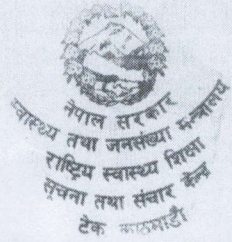 नेपाल सरकार
स्वास्थ्य तथा जनसंख्या मन्त्रालय
राष्ट्रिय स्वास्थ्य शिक्षा
सूचना तथा संचार केन्द्र
टेकु काठमाडौं